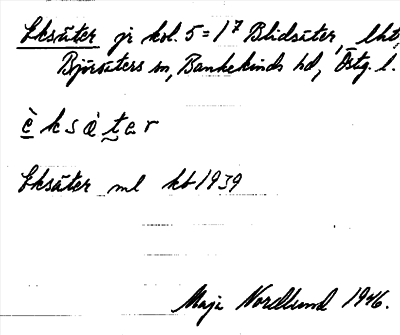 Eksäter jr kol. 5 = 1⁷ Blidsäter, lht,
Björsäters sn, Bankekinds hd, Östg. l.
è k s à t e r
Eksäter ml kb 1939
Maja Nordlund 1946.